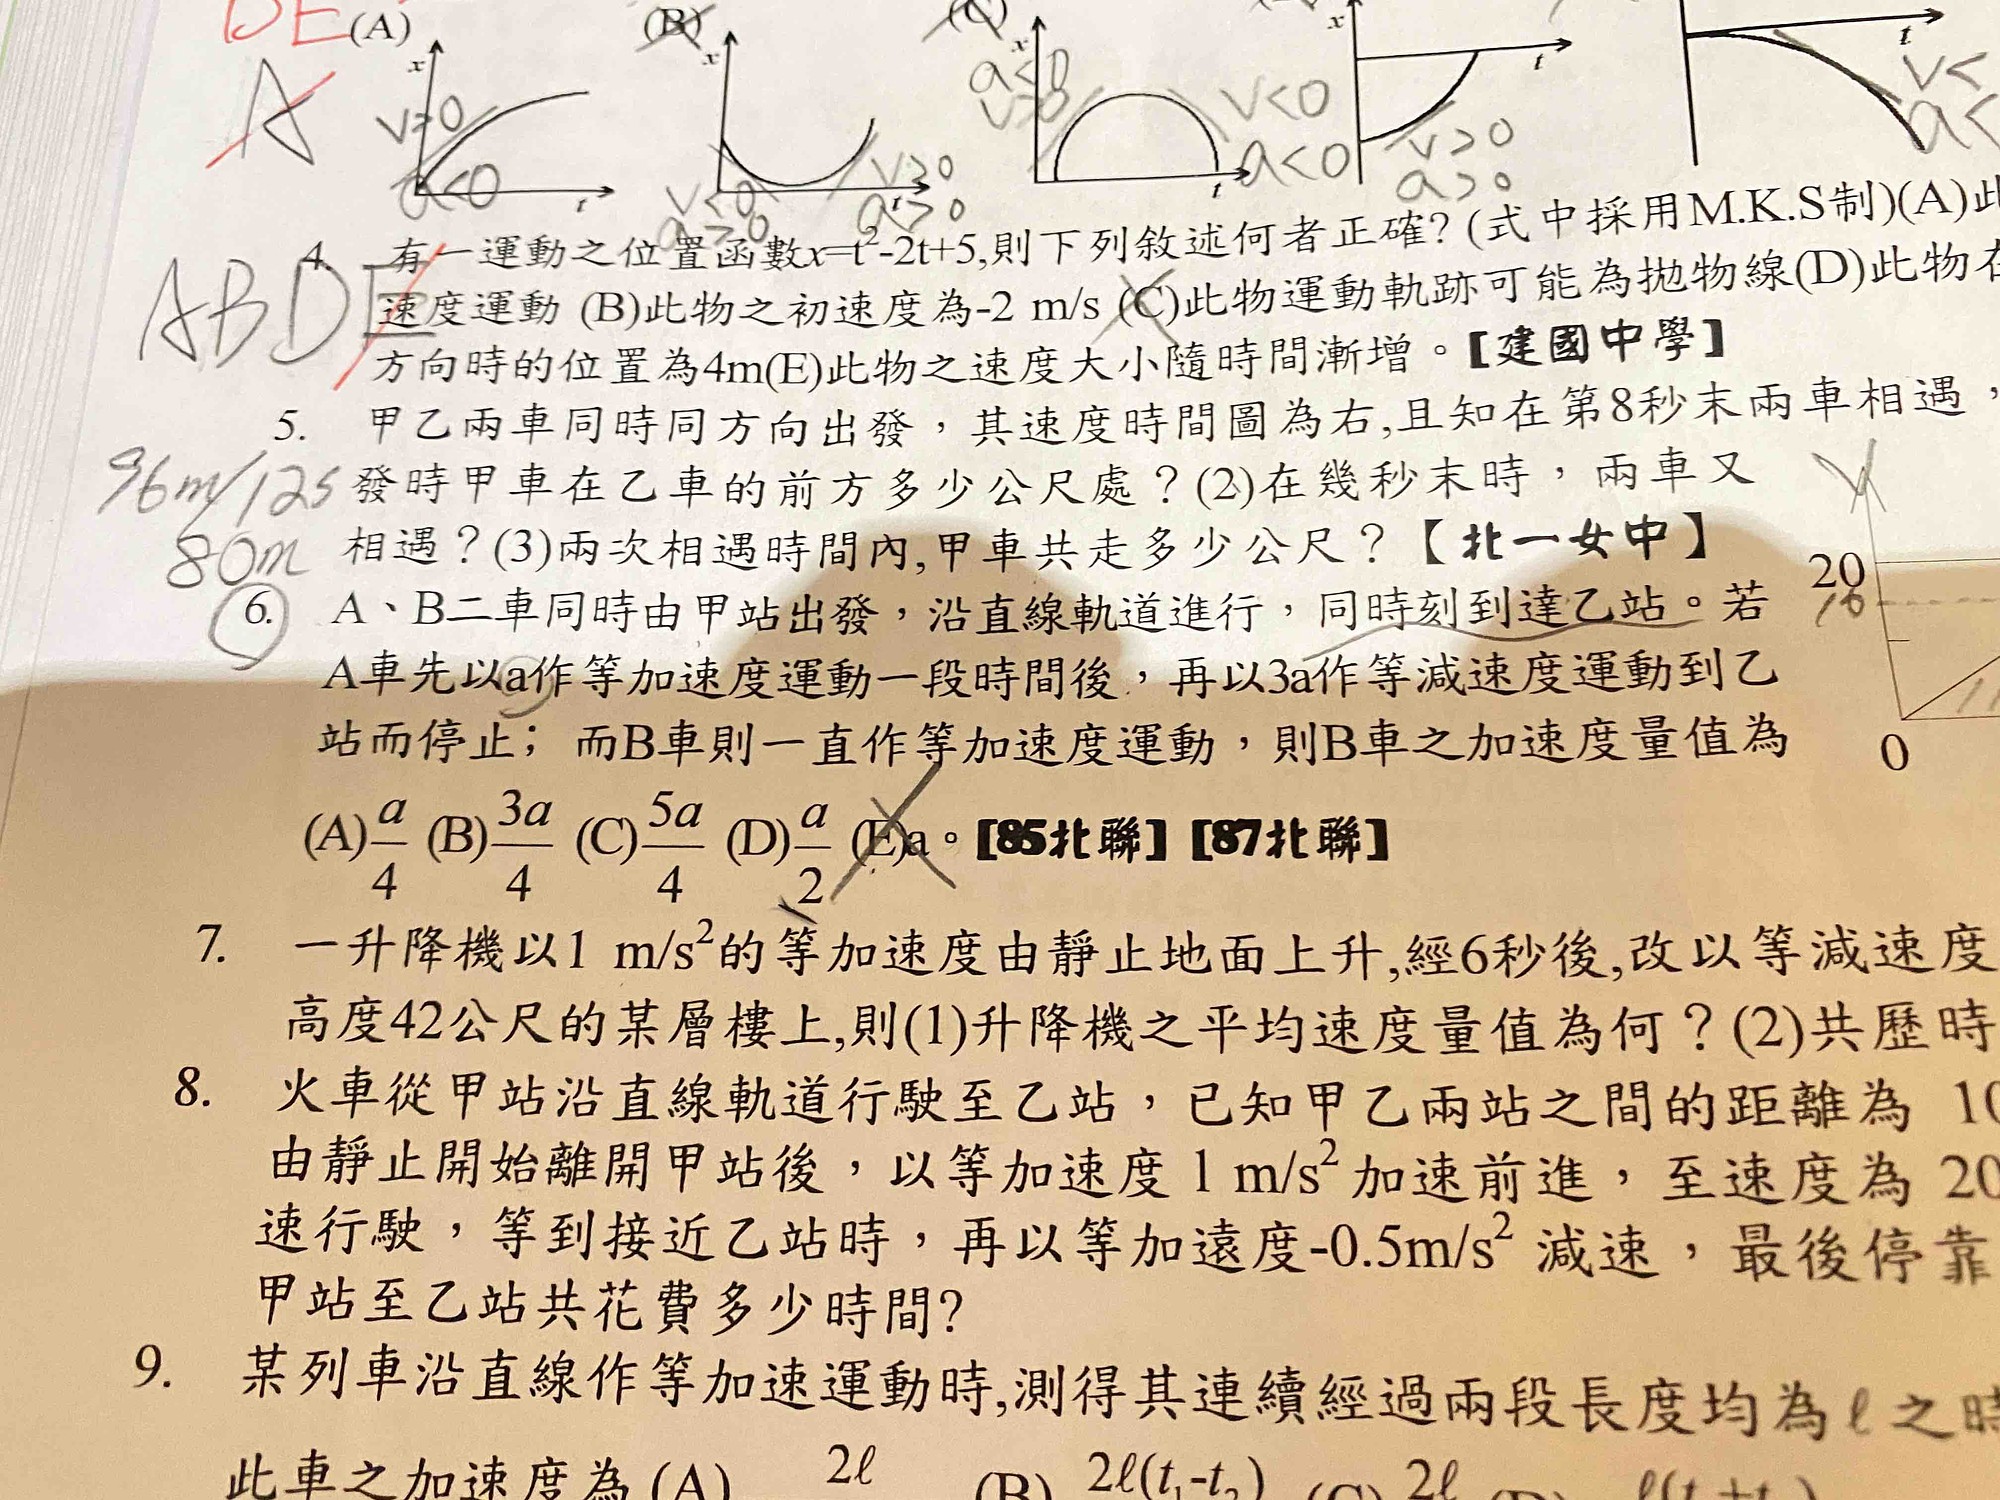 DE (A) (B) (C)
x x x x
A v>0 a<0 v>0 v<0 t t v<
a<0 t v<0 a>0 v>0 a>0 t t a<0 v>0 a>0 a<
4. 有一運動之位置函數x=t²-2t+5,則下列敘述何者正確? (式中採用M.K.S制)(A)此
ABDE 速度運動 (B)此物之初速度為-2 m/s (C)此物運動軌跡可能為拋物線(D)此物在
方向時的位置為4m(E)此物之速度大小隨時間漸增。【建國中學】
5. 甲乙兩車同時同方向出發，其速度時間圖為右,且知在第8秒末兩車相遇，
96m/12s 發時甲車在乙車的前方多少公尺處？(2)在幾秒末時，兩車又
80m 相遇？(3)兩次相遇時間內,甲車共走多少公尺？【北一女中】
20
16
0
6. A、B二車同時由甲站出發，沿直線軌道進行，同時刻到達乙站。若
A車先以a作等加速度運動一段時間後，再以3a作等減速度運動到乙
站而停止；而B車則一直作等加速度運動，則B車之加速度量值為
(A) a/4 (B) 3a/4 (C) 5a/4 (D) a/2 (E)a。【85北聯】【87北聯】
7. 一升降機以1 m/s²的等加速度由靜止地面上升,經6秒後,改以等減速度
高度42公尺的某層樓上,則(1)升降機之平均速度量值為何？(2)共歷時
8. 火車從甲站沿直線軌道行駛至乙站，已知甲乙兩站之間的距離為 10
由靜止開始離開甲站後，以等加速度 1 m/s² 加速前進，至速度為 20
速行駛，等到接近乙站時，再以等加遠度-0.5m/s² 減速，最後停靠
甲站至乙站共花費多少時間?
9. 某列車沿直線作等加速運動時,測得其連續經過兩段長度均為ℓ之時
此車之加速度為 (A) 2ℓ (B) 2ℓ(t₁-t₂) (C) 2ℓ (D)